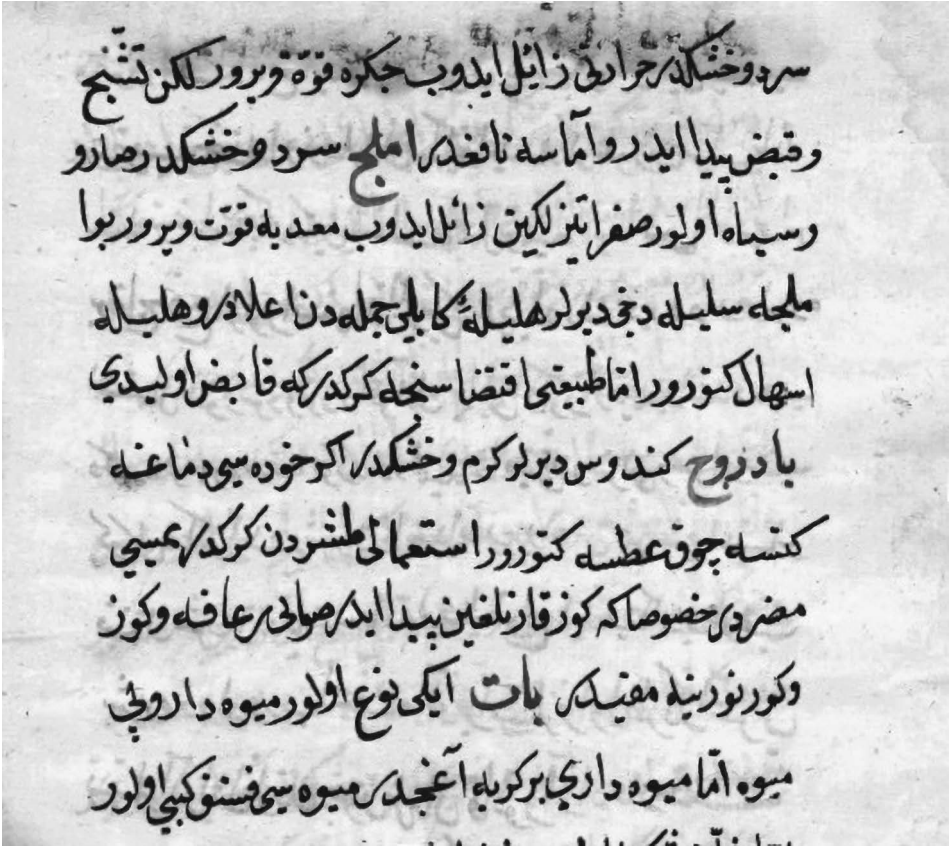 سرد و خشكدر حرارتی زائل ایدوب جكره قوة ویرور لكن تشنج
و قبض پیدا ایدر و آماسه نافعدر املج سرد و خشكدر صارو
و سیاه اولور صفرا تیزلكین زائل ایدوب معدیه قوت ویرور بو ا
ملجله سلیله دخی دیرلر هلیلۀ كابلی جمله دن اعلادر و هلیله
اسهال كتورور اما طبیعتی اقتضاسنجه كركدر كه قابض اولیدی
بادروج كندوس دیرلر كرم و خشكدر اكر خوده سی دماغنه
كتسه چوق عطسه كتورور استعمالی طشردن كركدر یمیسی
مضردر خصوصا كه كوز قارنلغین پیدا ایدر صوایی رعافه و كوز
و كور نورینه مفیددر بات ایكی نوع اولور میوه دار و بی
میوه اما میوه داری بر كریه آغجدر میوه سی فستق كبی اولور